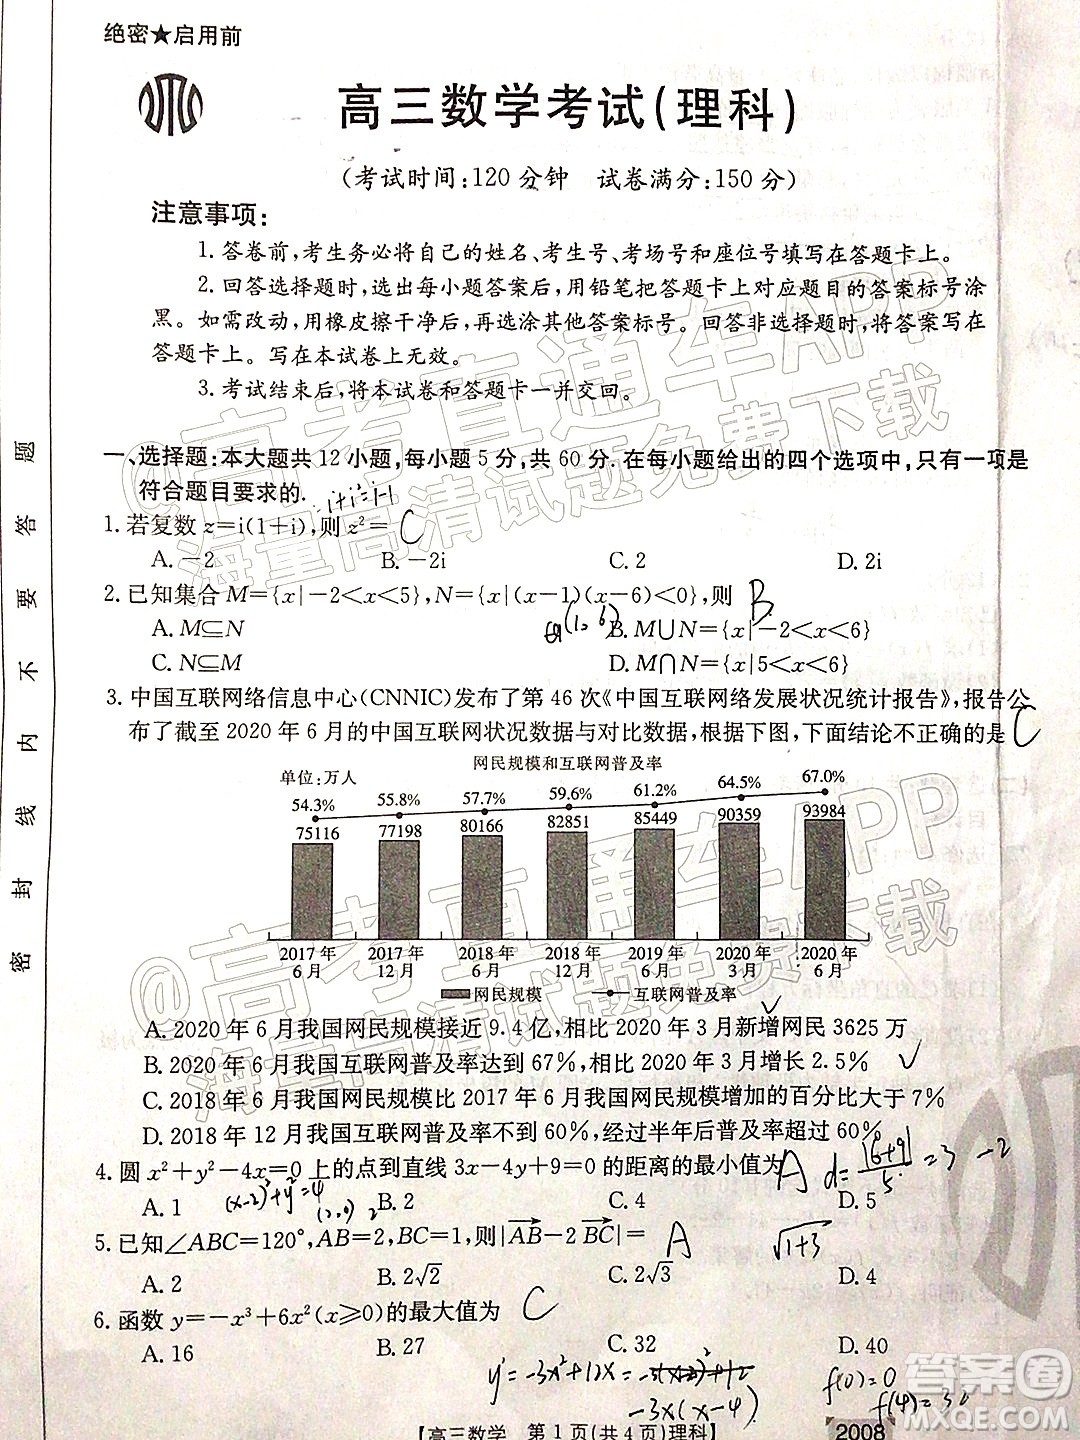 绝密★启用前
高三数学考试(理科)
(考试时间:120分钟 试卷满分:150分)
注意事项:
1.答卷前,考生务必将自己的姓名、考生号、考场号和座位号填写在答题卡上。
2.回答选择题时,选出每小题答案后,用铅笔把答题卡上对应题目的答案标号涂
黑。如需改动,用橡皮擦干净后,再选涂其他答案标号。回答非选择题时,将答案写在
答题卡上。写在本试卷上无效。
3.考试结束后,将本试卷和答题卡一并交回。
一、选择题:本大题共12小题,每小题5分,共60分.在每小题给出的四个选项中,只有一项是
符合题目要求的.
i+i²=i-1
1.若复数z=i(1+i),则z²= C
A.-2 B.-2i C.2 D.2i
2.已知集合M={x|-2<x<5},N={x|(x-1)(x-6)<0},则 B
A.M⊆N (1,6) B.M∪N={x|-2<x<6}
C.N⊆M D.M∩N={x|5<x<6}
3.中国互联网络信息中心(CNNIC)发布了第46次《中国互联网络发展状况统计报告》,报告公
布了截至2020年6月的中国互联网状况数据与对比数据,根据下图,下面结论不正确的是 C
网民规模和互联网普及率
单位:万人
54.3% 55.8% 57.7% 59.6% 61.2% 64.5% 67.0%
75116 77198 80166 82851 85449 90359 93984
2017年 2017年 2018年 2018年 2019年 2020年 2020年
6月 12月 6月 12月 6月 3月 6月
网民规模 互联网普及率
A.2020年6月我国网民规模接近9.4亿,相比2020年3月新增网民3625万
B.2020年6月我国互联网普及率达到67%,相比2020年3月增长2.5%
C.2018年6月我国网民规模比2017年6月我国网民规模增加的百分比大于7%
D.2018年12月我国互联网普及率不到60%,经过半年后普及率超过60%
4.圆x²+y²-4x=0上的点到直线3x-4y+9=0的距离的最小值为 A d=|6+9|/5=3 -2
A.1 B.2 C.4 D.5
(x-2)²+y²=4
(2,0) 2
5.已知∠ABC=120°,AB=2,BC=1,则|AB-2BC|= A √1+3
A.2 B.2√2 C.2√3 D.4
6.函数y=-x³+6x²(x≥0)的最大值为 C
A.16 B.27 C.32 D.40
y'=-3x²+12x=
-3x(x-4)
f(0)=0
【高三数学 第1页(共4页)理科】
2008
密 封 线 内 不 要 答 题
@高考直通车APP
海量高清试题免费下载
@高考直通车APP
海量高清试题免费下载
答案圈
MXQE.COM